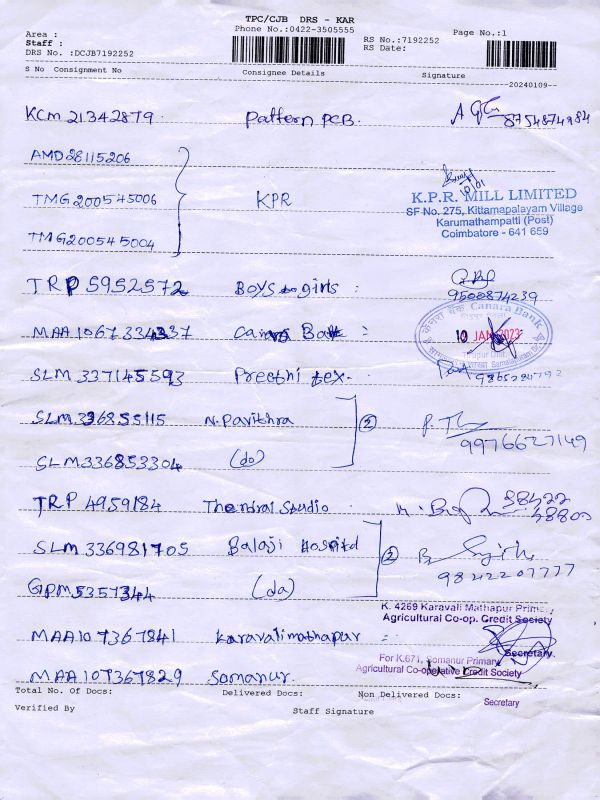 TPC/CJB DRS - KAR
Phone No.:0422-3505555
Area :
Staff :
DRS No. :DCJB7192252
RS No.:7192252
RS Date:
Page No.:1
S No Consignment No Consignee Details Signature
--20240109--
KCM 21342879. Pattern PCB. 8754874984
AMD28115206
TMG200545006 KPR
TMG200545004
10/01
K.P.R. MILL LIMITED
SF No. 275, Kittamapalayam Village
Karumathampatti (Post)
Coimbatore - 641 659
TRP 5952572 Boys to girls : 9500874239
MAA1067334337 Canara Bank :
Canara Bank
10 JAN 2023
SLM 337145593 Preethi tex.
SLM336855115 N. Pavithra ②
SLM336853304 (do) 9976627149
TRP 4959184 Thendral Studio
SLM 336981705 Balaji Hospital ②
GPM5357344 (do) 9842207777
K. 4269 Karavali Mathapur Primary
Agricultural Co-op. Credit Society
MAA107367841 Karavalimathapur :
Secretary.
For K.671, Somanur Primary
Agricultural Co-operative Credit Society
MAA107367829 Somanur.
Secretary
Total No. Of Docs: Delivered Docs: Non Delivered Docs:
Verified By Staff Signature